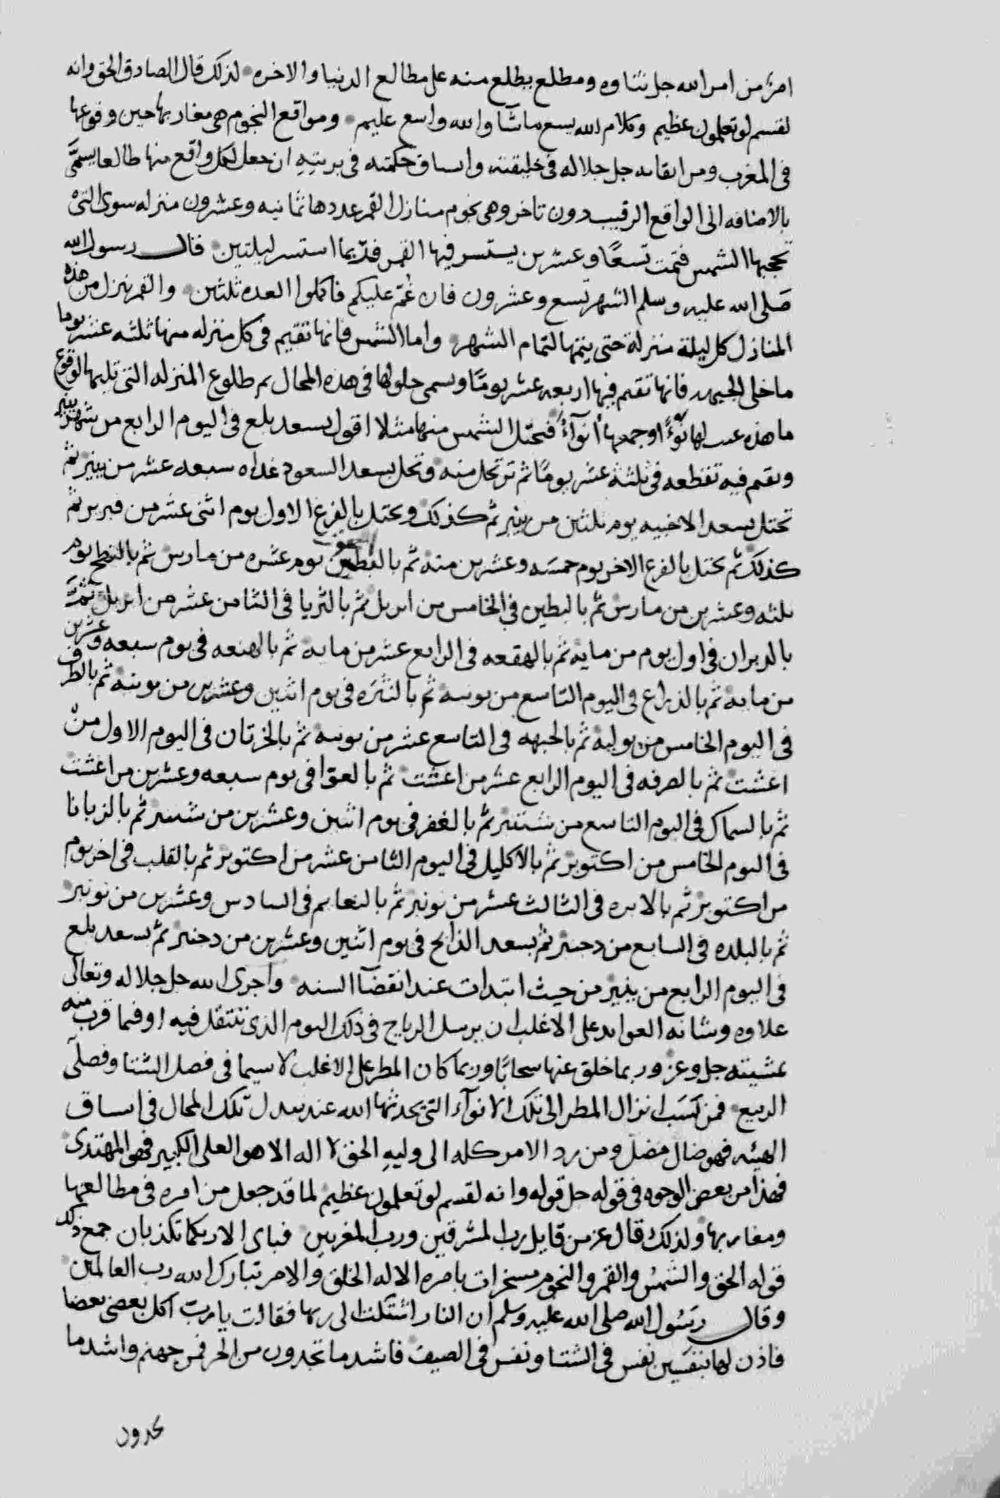 امر من امر الله جل ثناوه ومطلع يطلع منه على مطالع الدنيا والاخره لذلك قال الصادق الحق وانه
لقسم لو تعلمون عظيم وكلام الله يسع ماشآ والله واسع عليم ومواقع النجوم هى مغاربها حين وقوعها
فى المغرب ومن اتقانه جل جلاله فى خليقته واتساق حكمته فى بريته ان جعل لكل واقع منها طالعا يسمَّى
بالاضافه الى الواقع الرقيب دون تاخر وهى نجوم منازل القمر عددها ثمانيه وعشرون منزله سوى التى
تحجبها الشمس فتمت تسعًا وعشرين يستسر فيها القمر فربما استسر ليلتين قال رسول الله
صَلى الله عليه وسلم الشهر تسع وعشرون فان غُمّ عليكم فاكملوا العده ثلثين والقمر ينزل من هذه
المنازل كل ليلة منزلة حتى يتمها لتمام الشهر واما الشمس فانها تقيم فى كل منزله منها ثلثه عشر يوما
ما خلى الجبهه فانها تقيم فيها اربعه عشر يومًا ويسمى حلولها فى هذه المحال ثم طلوع المنزله التى تليها لوقوع
ما هذه لها نَوْءًا وجمعها أنوآءً فتحتل الشمس منها مثلا اقول بسعد بلع فى اليوم الرابع من شهر ينير
وتقيم فيه تقطعه فى ثلثة عشر يومًا ثم ترتحل منه وتحل بسعد السعود غداه سبعه عشر من ينير ثم
تحتل بسعد الاخبيه يوم ثلثين من ينير ثم كذلك وتحتل بالفرغ الاول يوم اثنى عشر من فبرير ثم
كذلك ثم تحتل بالفرغ الاخر يوم خمسه وعشرين منه ثم بالبطين الحوت يوم عشره من مارس ثم بالنطح يوم
ثلثه وعشرين من مارس ثم بالبطين فى الخامس من ابريل ثم بالثريا فى الثامن عشر من ابريل ثمَّ
بالدبران فى اول يوم من مايه ثم بالهقعه فى الرابع عشر من مايه ثم بالهنعه فى يوم سبعه وعشرين
من مايه ثم بالذراع فى اليوم التاسع من يونيه ثم بالنثره فى يوم اثنين وعشرين من يونيه ثم بالطرف
فى اليوم الخامس من يوليه ثم بالجبهه فى التاسع عشر من يونيه ثم بالخرتان فى اليوم الاول من
اغشت ثم بالصرفه فى اليوم الرابع عشر من اغشت ثم بالعوا فى يوم سبعه وعشرين من اغشت
ثم بالسماك فى اليوم التاسع من شتنبر ثم بالغفر فى يوم اثنين وعشرين من شتنبر ثم بالزبانا
فى اليوم الخامس من اكتوبر ثم بالاكليل فى اليوم الثامن عشر من اكتوبر ثم بالقلب فى اخر يوم
من اكتوبر ثم بالابره فى الثالث عشر من نونبر ثم بالنعايم فى السادس وعشرين من نونبر
ثم بالبلده فى السابع من دجنبر ثم بسعد الذابح فى يوم اثنين وعشرين من دجنبر ثم بسعد بلع
فى اليوم الرابع من ينير من حيث ابتدات عند انقضآ السنه واجرى الله جل جلاله وتعالى
علاوه وشانه العوايد على الاغلب ان يرسل الرياح فى ذلك اليوم الذى تنتقل فيه او فيما قرب منه
بمشيته جل وعز وربما خلق عنها سحابًا وربما كان المطر على الاغلب لا سيما فى فصل الشتا وفصلى
الربيع فمن نسَب انزال المطر الى تلك الانوآء التى يحدثها الله عند تبدل تلك المحال فى اتساق
الهيئه فهو ضال مُضل ومن رد الامر كله الى وليه الحق لا اله الا هو العلى الكبير فهو المهتدى
فهذا من بعض الوجوه فى قوله جل قوله وانه لقسم لو تعلمون عظيم لما قد جعل من امره فى مطالعها
ومغاربها ولذلك قال عز من قايل رب المشرقين ورب المغربين فباى الا ربكما تكذبان جمع ذلك
قوله الحق والشمس والقمر والنجوم مسخرات بامره الا له الخلق والامر تبارك الله رب العالمين
وقال رسُول الله صلى الله عليه وسلم ان النار اشتكت الى ربها فقالت يا رب اكل بعضى بعضا
فاذن لها بنفسين نفس فى الشتا ونفس فى الصيف فاشد ما تجدون من الحر فمن جهنم واشد ما
تجدون